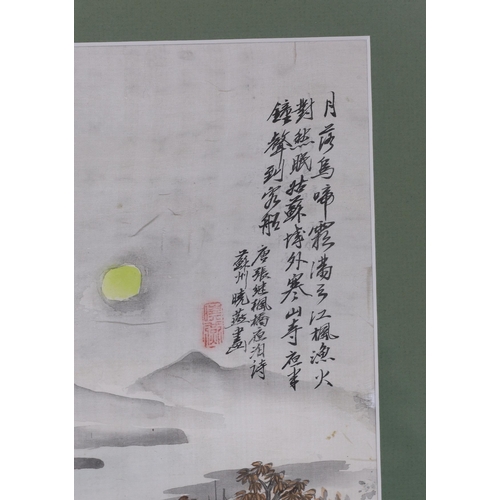 月落烏啼霜滿天江楓漁火
對愁眠姑蘇城外寒山寺夜半
鐘聲到客船
唐張繼楓橋夜泊詩
蘇州曉燕畫